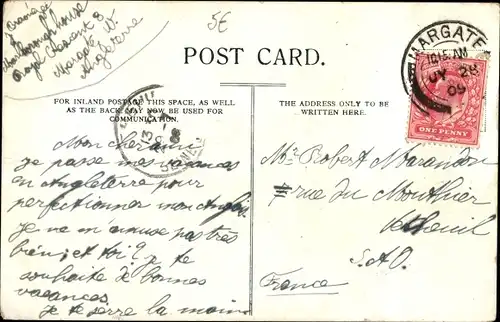 5£
Marlborough House
Royal Crescent 8
Margate W.
Angleterre
POST CARD.
FOR INLAND POSTAGE THIS SPACE, AS WELL
AS THE BACK MAY NOW BE USED FOR
COMMUNICATION.
THE ADDRESS ONLY TO BE
WRITTEN HERE.
MARGATE
10 15 AM
JY 28
09
ONE PENNY
Mon cher ami
je passe mes vacances
en Angleterre pour
perfectionner mon Anglais.
je ne m'amuse pas très
bien, et toi? je te
souhaite de bonnes
vacances.
je te serre la main
Mr Robert
7 rue du Mouthier
S. & O.
France